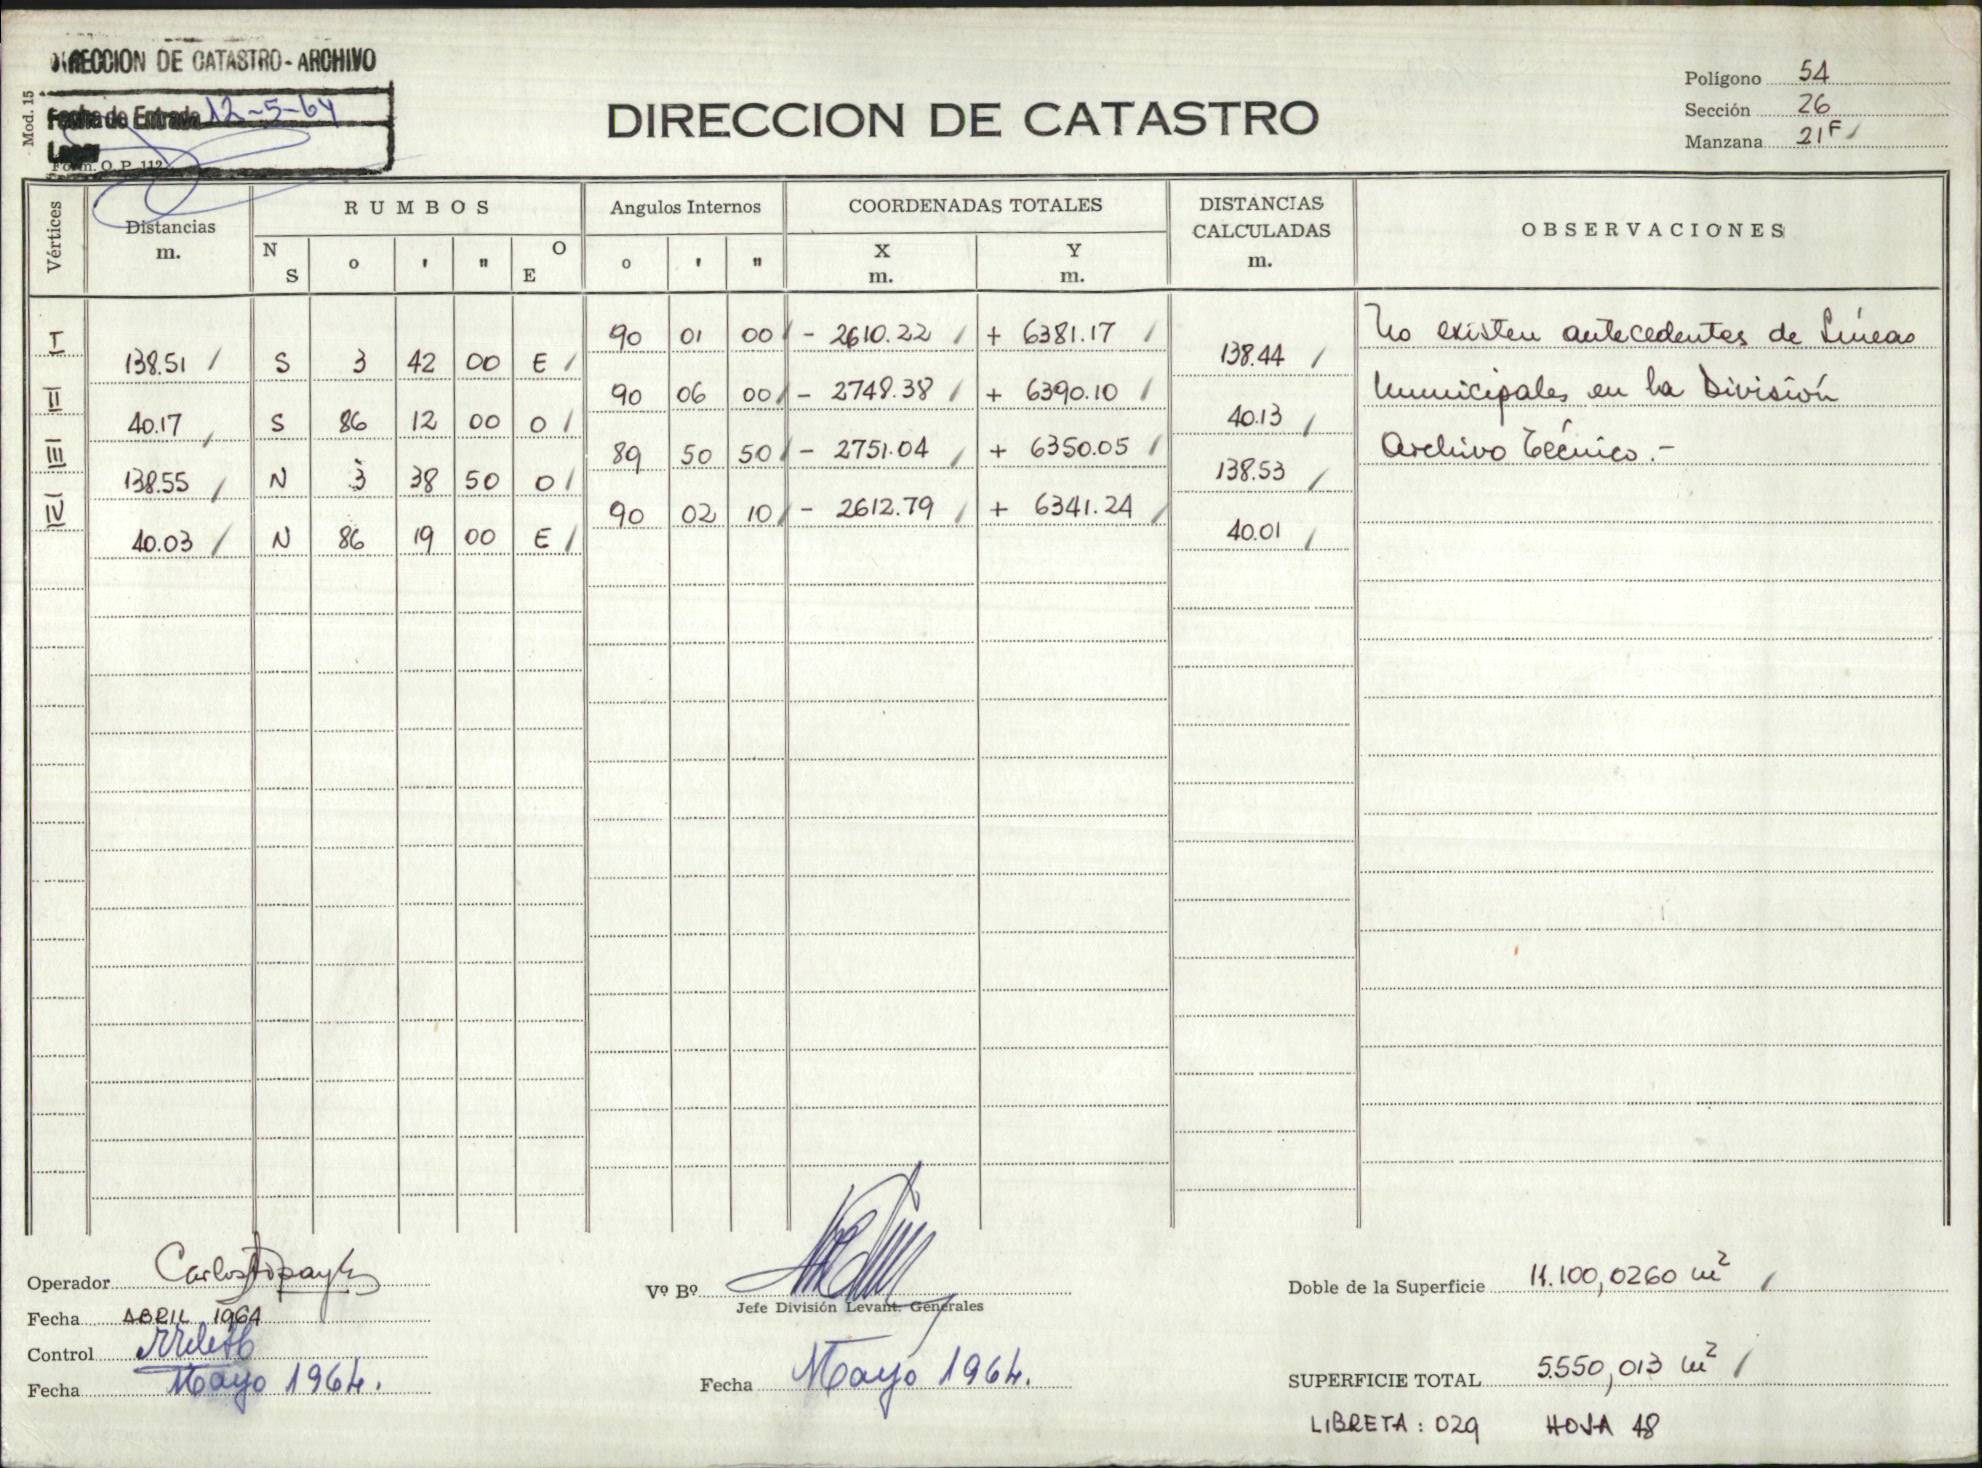 DIRECCION DE CATASTRO - ARCHIVO
Fecha de Entrada 12-5-64
Mod. 15
Form. O. P. 112
DIRECCION DE CATASTRO
Polígono 54
Sección 26
Manzana 21F
Vértices
Distancias
m.
RUMBOS
N S ° ' " O E
Angulos Internos
° ' "
COORDENADAS TOTALES
X m. Y m.
DISTANCIAS CALCULADAS
m.
OBSERVACIONES
I 90 01 00 - 2610.22 + 6381.17
138.51 S 3 42 00 E 138.44
II 90 06 00 - 2748.38 + 6390.10
40.17 S 86 12 00 O 40.13
III 89 50 50 - 2751.04 + 6350.05
138.55 N 3 38 50 O 138.53
IV 90 02 10 - 2612.79 + 6341.24
40.03 N 86 19 00 E 40.01
No existen antecedentes de Líneas
Municipales en la División
Archivo Técnico.-
Operador Carlos
Fecha ABRIL 1964
Control
Fecha Mayo 1964.
Vº Bº
Jefe División Levant. Generales
Fecha Mayo 1964.
Doble de la Superficie 11.100,0260 m²
SUPERFICIE TOTAL 5.550,013 m²
LIBRETA : 029 HOJA 48